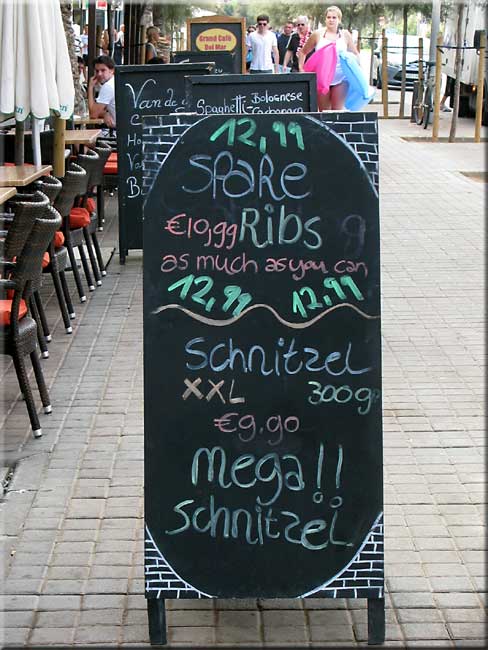 Grand Café
Del Mar
Spaghetti Bolognese
Carbonara
12,99
Spare
€10,99 Ribs
as much as you can
12,99 12,99
Schnitzel
XXL 300gr
€9.90
Mega!!
Schnitzel